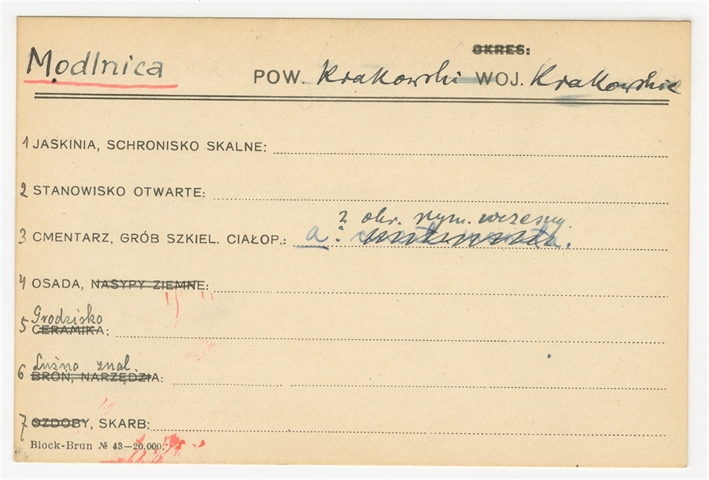 OKRES:
Modlnica POW. Krakowski WOJ. Krakowskie
1 JASKINIA, SCHRONISKO SKALNE:
2 STANOWISKO OTWARTE:
? okr. rzym. wczesny
3 CMENTARZ, GRÓB SZKIEL. CIAŁOP.: a:
4 OSADA, NASYPY ZIEMNE:
Grodzisko
5 CERAMIKA:
Luźne znal.
6 BROŃ, NARZĘDZIA:
7 OZDOBY, SKARB:
Block-Brun № 43—20.000.